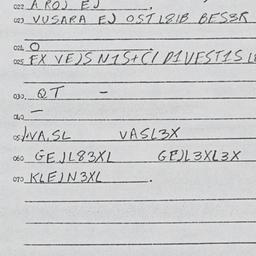 022 A ROJ EJ .
023 VUSARA EJ OST L81B BES3R
024 O
025 EX VEJS N1S+C/ D1VEST1S
030. QT -
040 -
05 VA,SL VASL3X
060 GEJL83XL GEJL3XL3X
070 KLEJN3XL .